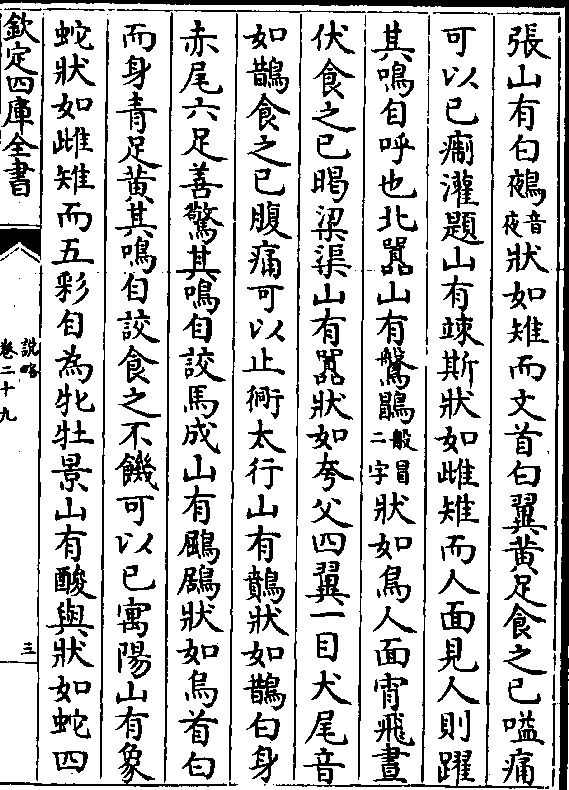 張山有白鵺音夜狀如雉而文首白翼黃足食之已嗌痛
可以已癎灌題山有竦斯狀如雌雉而人面見人則躍
其鳴自呼也北嚻山有鷔鶥般冒二字狀如烏人面宵飛晝
伏食之已暍梁渠山有嚻狀如夸父四翼一目犬尾音
如鵲食之已腹痛可以止衕太行山有鷾狀如鵲白身
赤尾六足善驚其鳴自詨馬成山有鶌鶋狀如烏首白
而身青足黃其鳴自詨食之不饑可以已寓陽山有象
蛇狀如雌雉而五彩自為牝牡景山有酸與狀如蛇四
欽定四庫全書
說略
卷二十九
三